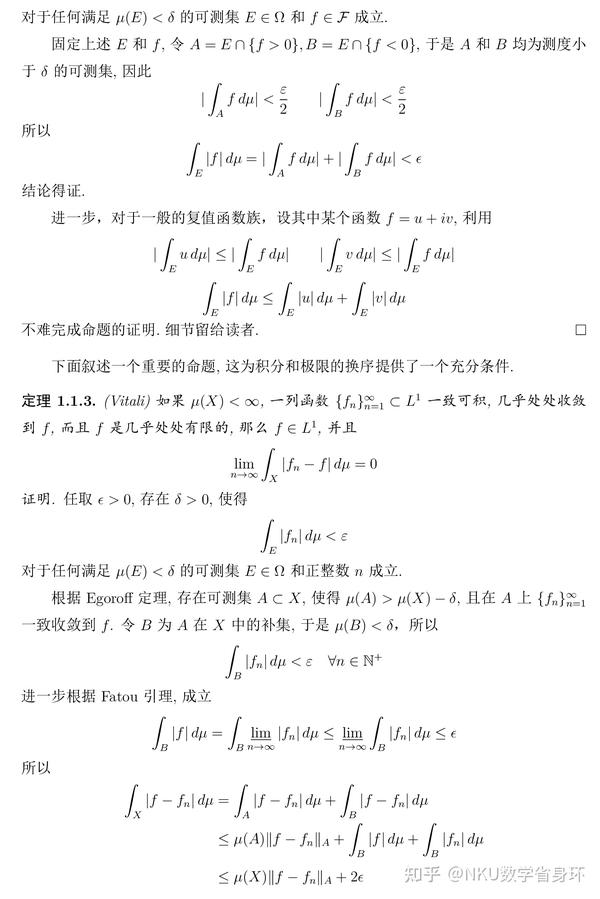 对于任何满足 μ(E) < δ 的可测集 E ∈ Ω 和 f ∈ 𝓕 成立.
固定上述 E 和 f, 令 A = E ∩ {f > 0}, B = E ∩ {f < 0}, 于是 A 和 B 均为测度小
于 δ 的可测集, 因此
|∫_A f dμ| < ε/2  |∫_B f dμ| < ε/2
所以
∫_E |f| dμ = |∫_A f dμ| + |∫_B f dμ| < ϵ
结论得证.
进一步，对于一般的复值函数族，设其中某个函数 f = u + iv, 利用
|∫_E u dμ| ≤ |∫_E f dμ|  |∫_E v dμ| ≤ |∫_E f dμ|
∫_E |f| dμ ≤ ∫_E |u| dμ + ∫_E |v| dμ
不难完成命题的证明. 细节留给读者. □
下面叙述一个重要的命题, 这为积分和极限的换序提供了一个充分条件.
定理 1.1.3. (Vitali) 如果 μ(X) < ∞, 一列函数 {f_n}_{n=1}^∞ ⊂ L¹ 一致可积, 几乎处处收敛
到 f, 而且 f 是几乎处处有限的, 那么 f ∈ L¹, 并且
lim_{n→∞} ∫_X |f_n − f| dμ = 0
证明. 任取 ϵ > 0, 存在 δ > 0, 使得
∫_E |f_n| dμ < ε
对于任何满足 μ(E) < δ 的可测集 E ∈ Ω 和正整数 n 成立.
根据 Egoroff 定理, 存在可测集 A ⊂ X, 使得 μ(A) > μ(X) − δ, 且在 A 上 {f_n}_{n=1}^∞
一致收敛到 f. 令 B 为 A 在 X 中的补集, 于是 μ(B) < δ，所以
∫_B |f_n| dμ < ε  ∀n ∈ ℕ⁺
进一步根据 Fatou 引理, 成立
∫_B |f| dμ = ∫_B \underline{lim}_{n→∞} |f_n| dμ ≤ \underline{lim}_{n→∞} ∫_B |f_n| dμ ≤ ϵ
所以
∫_X |f − f_n| dμ = ∫_A |f − f_n| dμ + ∫_B |f − f_n| dμ
≤ μ(A)‖f − f_n‖_A + ∫_B |f| dμ + ∫_B |f_n| dμ
≤ μ(X)‖f − f_n‖_A + 2ϵ
知乎 @NKU数学省身环